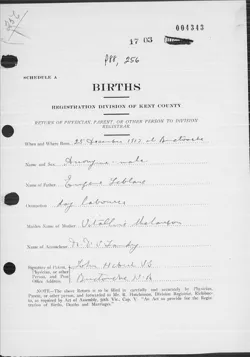 004343
17 03
pp. 256
SCHEDULE A
BIRTHS
REGISTRATION DIVISION OF KENT COUNTY
RETURN OF PHYSICIAN, PARENT OR OTHER PERSON TO DIVISION
REGISTRAR
When and Where Born, 28 December 1912 at Buctouche
Name and Sex, Anonyme - male
Name of Father, Eugene Leblanc
Occupation, day labourer
Maiden Name of Mother, Vitaline Melanson
Name of Accoucheur, Landry
Signature of Parent,
Physician, or other
Person, and Post
Office Address
Buctouche N.B.
NOTE.—The above Return is to be filled in carefully and accurately by Physician,
Parent, or other person, and forwarded to
to, as required by Act of Assembly, Cap. V. "An Act to provide for the Regis-
tration of Births, Deaths and Marriages."